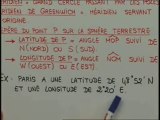 = GRAND CERCLE PASSANT PAR LES
MÉRIDIEN DE GREENWICH = MÉRIDIEN SERVANT
ORIGINE
DU POINT P SUR LA SPHÈRE TERRESTRE
→ LATITUDE DE P = ANGLE SUIVI DE
N (NORD) OU S (SUD).
→ LONGITUDE DE P = ANGLE SUIVI DE
W (OUEST) OU E (EST)
EX: PARIS A UNE LATITUDE DE 48°52' N
ET UNE LONGITUDE DE 2°20' E.